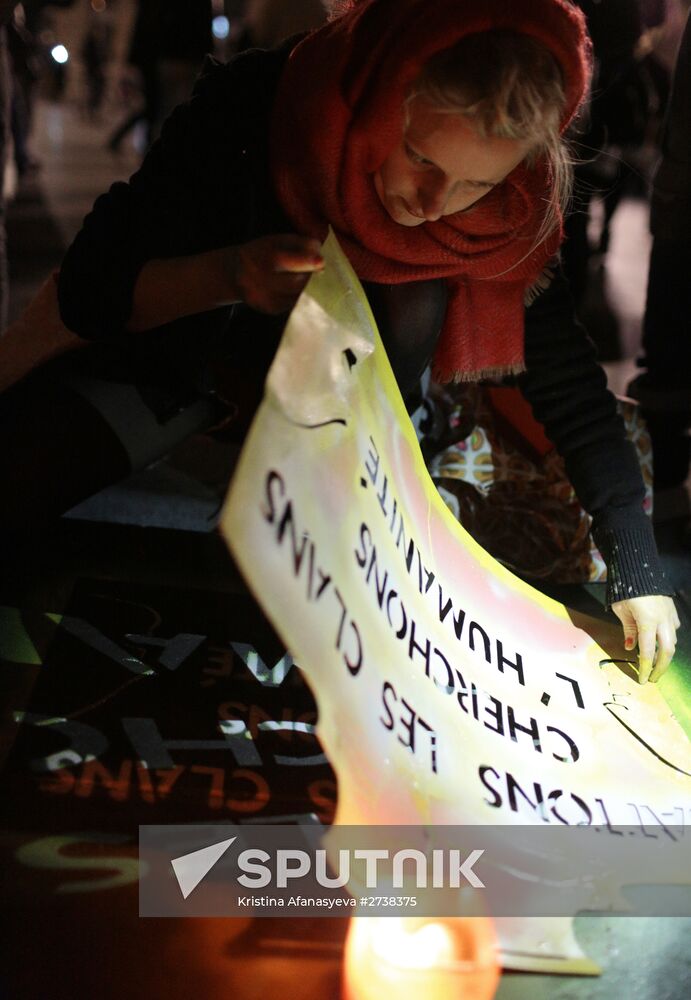 ATTONS LES CLAINS
CHERCHONS
L'HUMAINITÉ.
SPUTNIK
Kristina Afanasyeva #2738375